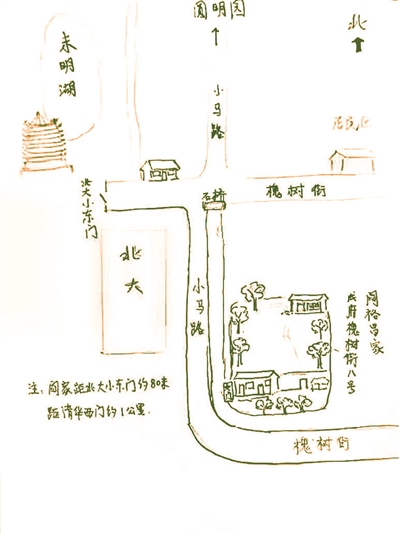 圆明园
北
未明湖
小马路
石桥
槐树街
北大小东门
北大
小马路
阎裕昌家
成府槐树街八号
注：阎家距北大小东门约80米
距清华西门约1公里.
槐树街